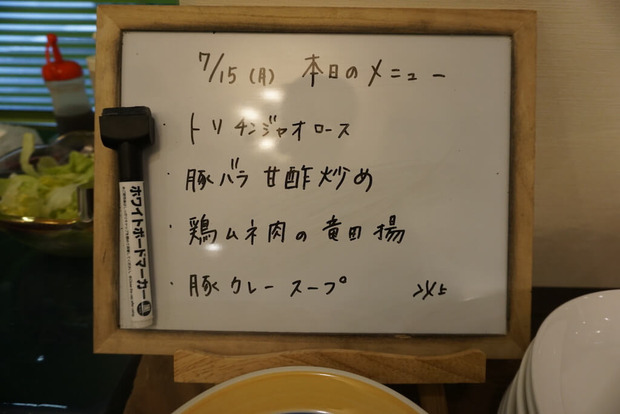 7/15(月) 本日のメニュー
・トリチンジャオロース
・豚バラ甘酢炒め
・鶏ムネ肉の竜田揚
・豚カレースープ
ホワイトボードマーカー